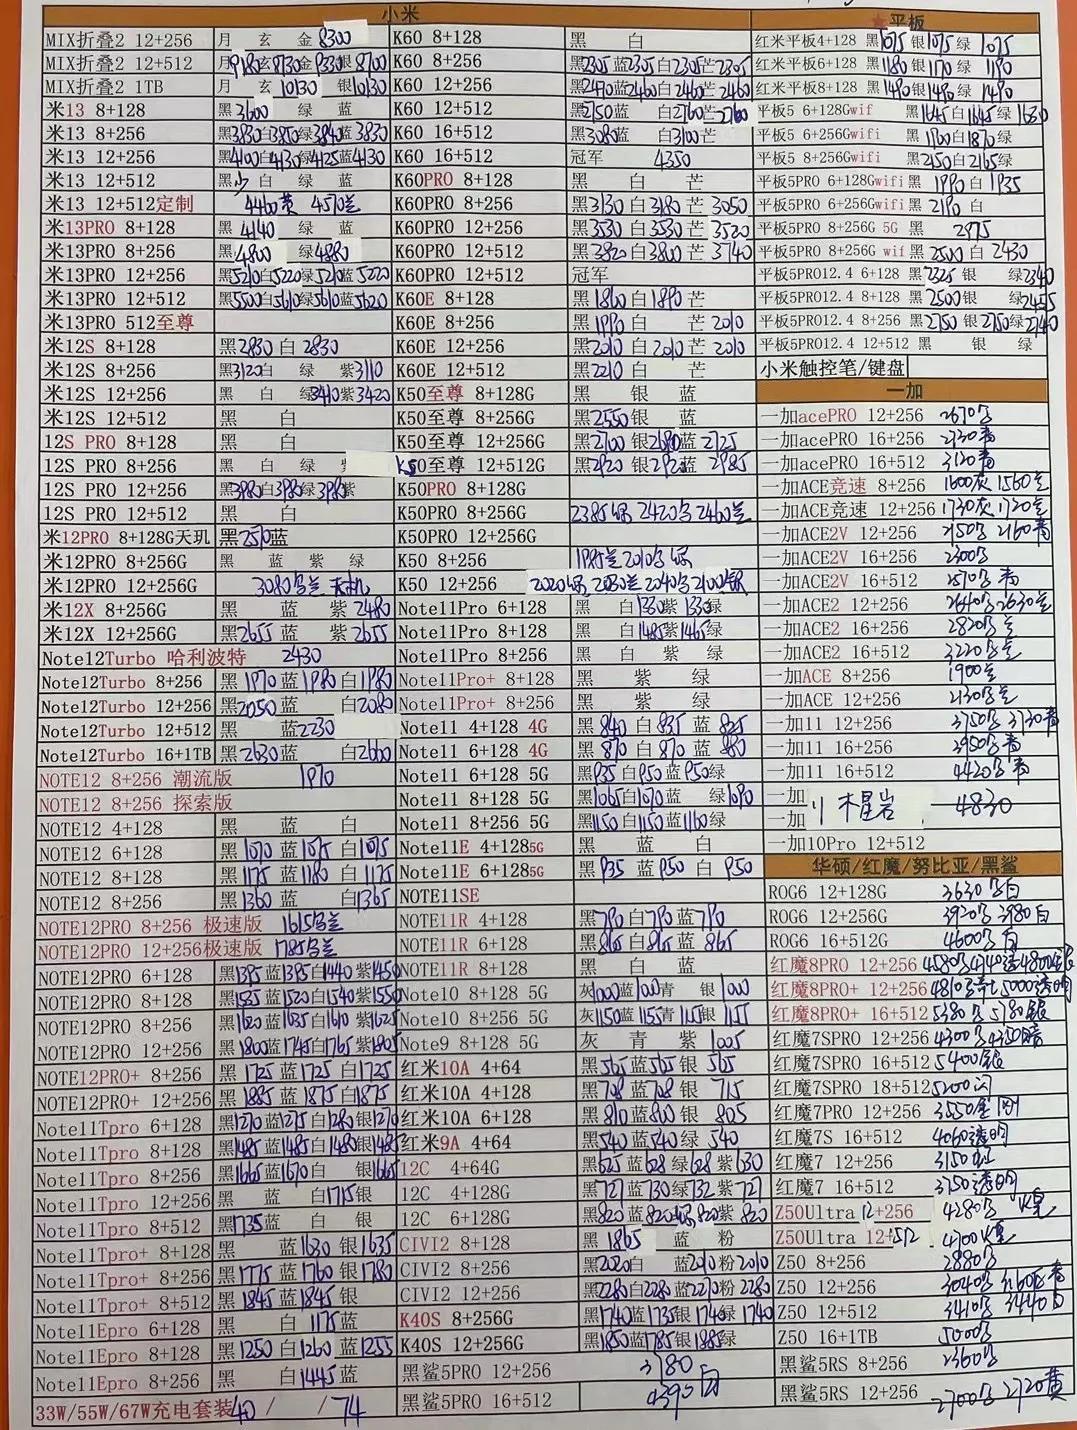 小米
MIX折叠2 12+256 月 玄 金 8300
MIX折叠2 12+512 月9180玄8730金9330银8700
MIX折叠2 1TB 月 玄 10130 银10130
米13 8+128 黑3600 绿 蓝
米13 8+256 黑3830白3850绿3840蓝3830
米13 12+256 黑4100白4130绿4125蓝4130
米13 12+512 黑少 白 绿 蓝
米13 12+512定制 4460黄 4570兰
米13PRO 8+128 黑4140 绿 蓝
米13PRO 8+256 黑4800 绿4880
米13PRO 12+256 黑5210白5220绿5210蓝5220
米13PRO 12+512 黑5500白5610绿5610蓝5620
米13PRO 512至尊
米12S 8+128 黑2830 白 2830
米12S 8+256 黑3120白 绿 紫3110
米12S 12+256 黑 白 绿3410紫3420
米12S 12+512 黑 白
12S PRO 8+128 黑 白
12S PRO 8+256 黑 白 绿
12S PRO 12+256 黑3980白3980绿3980紫
12S PRO 12+512 黑 白
米12PRO 8+128G天玑 黑2570蓝
米12PRO 8+256G 黑 蓝 紫 绿
米12PRO 12+256G 3080乌兰 天机
米12X 8+256G 黑 蓝 紫 2480
米12X 12+256G 黑2655 蓝 紫 2655
Note12Turbo 哈利波特 2430
Note12Turbo 8+256 黑 1970 蓝1980 白1980
Note12Turbo 12+256 黑2050 白2080
Note12Turbo 12+512 黑 蓝2230
Note12Turbo 16+1TB 黑 2630 白2600
NOTE12 8+256 潮流版 1970
NOTE12 8+256 探索版
NOTE12 4+128 黑 蓝 白
NOTE12 6+128 黑 1070 蓝1075 白1075
NOTE12 8+128 黑 1175 蓝1180 白1175
NOTE12 8+256 黑 1360 蓝 白1365
NOTE12PRO 8+256 极速版 1615乌兰
NOTE12PRO 12+256极速版 1785乌兰
NOTE12PRO 6+128 黑1395蓝1395白1440紫1450
NOTE12PRO 8+128 黑1535蓝1520白1540紫1550
NOTE12PRO 8+256 黑1620蓝1635白1610紫1625
NOTE12PRO 12+256 黑1800蓝1745白1765紫1805
NOTE12PRO+ 8+256 黑 1725 蓝 1725 白 1725
NOTE12PRO+ 12+256 黑 1885 蓝 1875 白 1875
Note11Tpro 6+128 黑1270蓝1275白1280银1270
Note11Tpro 8+128 黑1485蓝1485白1480银1485
Note11Tpro 8+256 黑1665蓝1670白 银1665
Note11Tpro 12+256 黑 蓝 白1715银
Note11Tpro 8+512 黑1735 蓝 白 银
Note11Tpro+ 8+128 黑 蓝1630 银1635
Note11Tpro+ 8+256 黑1775 蓝1760 银1780
Note11Tpro+ 8+512 黑1845 蓝1845 银
Note11Epro 6+128 黑 白 1175蓝
Note11Epro 8+128 黑 1250 白1260 蓝1255
Note11Epro 8+256 黑 白1445蓝
33W/55W/67W充电套装 40 / / 74
K60 8+128 黑 白
K60 8+256 黑2305蓝2305白2305芒2305
K60 12+256 黑2470蓝2460白2460芒2460
K60 12+512 黑2750蓝 白2760芒2760
K60 16+512 黑3080蓝 白3100芒
K60 16+512 冠军 4350
K60PRO 8+128 黑 白 芒
K60PRO 8+256 黑3130 白 3180 芒 3050
K60PRO 12+256 黑3530 白 3530 芒 3520
K60PRO 12+512 黑3820 白3800 芒 3740
K60PRO 12+512 冠军
K60E 8+128 黑 1860 白 1890 芒
K60E 8+256 黑1990 白 芒 2010
K60E 12+256 黑2010 白 2010 芒 2010
K60E 12+512 黑2210 白 芒
K50至尊 8+128G 黑 银 蓝
K50至尊 8+256G 黑2550银 蓝
K50至尊 12+256G 黑2700 银2680蓝 2725
K50至尊 12+512G 黑2920 银2920蓝 2985
K50PRO 8+128G
K50PRO 8+256G 2385绿 2420乌 2460兰
K50PRO 12+256G
K50 8+256 1985兰 2010乌 绿
K50 12+256 2020绿 2030兰 2040乌 2100银
Note11Pro 6+128 黑 白1330紫1330绿
Note11Pro 8+128 黑 白1485紫1465绿
Note11Pro 8+256 黑 白 紫 绿
Note11Pro+ 8+128 黑 紫 绿
Note11Pro+ 8+256 黑 紫 绿
Note11 4+128 4G 黑 840 白 835 蓝 825
Note11 6+128 4G 黑 870 白 870 蓝 860
Note11 6+128 5G 黑935 白950蓝950绿
Note11 8+128 5G 黑1065白1070蓝 绿1090
Note11 8+256 5G 黑1150白1150蓝1160绿
Note11E 4+1285G 黑 蓝 白
Note11E 6+1285G 黑 935 蓝 950 白 950
NOTE11SE
NOTE11R 4+128 黑790 白790蓝790
NOTE11R 6+128 黑865 白865 蓝 865
NOTE11R 8+128 黑 白 蓝
Note10 8+128 5G 灰1000蓝1000青 银1000
Note10 8+256 5G 灰1150蓝1155青1115银1155
Note9 8+128 5G 灰 青 紫 1005
红米10A 4+64 黑565蓝565 银 565
红米10A 4+128 黑708蓝708 银 715
红米10A 6+128 黑810蓝800 银 805
红米9A 4+64 黑540 蓝540 绿 540
12C 4+64G 黑625 蓝628 绿628 紫630
12C 4+128G 黑727 蓝730绿732 紫727
12C 6+128G 黑820 蓝820绿820紫820
CIVI2 8+128 黑 1865 蓝 粉
CIVI2 8+256 黑2020白 蓝2010粉2010
CIVI2 12+256 黑2280白2280蓝2270粉2280
K40S 8+256G 黑1740蓝1735银1740绿1740
K40S 12+256G 黑1850蓝1785银1885绿
黑鲨5PRO 12+256 3780
黑鲨5PRO 16+512 4390白
★平板
红米平板4+128 黑1075银1075绿 1075
红米平板6+128 黑1180银1170绿 1190
红米平板8+128 黑1490银1490绿 1490
平板5 6+128Gwifi 黑1645白1645绿1650
平板5 6+256Gwifi 黑1900白1870绿
平板5 8+256Gwifi 黑2150白2165绿
平板5PRO 6+128Gwifi黑 1990白1935
平板5PRO 6+256Gwifi黑 2190 白
平板5PRO 8+256G 5G 黑 2975
平板5PRO 8+256G wif黑 2500白 2430
平板5PRO12.4 6+128 黑2325 银 绿2340
平板5PRO12.4 8+128 黑2500 银 绿2455
平板5PRO12.4 8+256 黑2750 银2750绿2740
平板5PRO12.4 12+512 黑 银 绿
小米触控笔/键盘
一加
一加acePRO 12+256 2670乌
一加acePRO 16+256 2730青
一加acePRO 16+512 3120青
一加ACE竞速 8+256 1600灰 1560兰
一加ACE竞速 12+256 1730灰 1720兰
一加ACE2V 12+256 2150乌 2160青
一加ACE2V 16+256 2300乌
一加ACE2V 16+512 2570乌 青
一加ACE2 12+256 2640乌2630兰
一加ACE2 16+256 2820乌兰
一加ACE2 16+512 3220乌兰
一加ACE 8+256 1900兰
一加ACE 12+256 2130乌兰
一加11 12+256 3750乌 3730青
一加11 16+256 3950乌青
一加11 16+512 4420乌 青
一加 11 木星岩 4830
一加
一加10Pro 12+512
华硕/红魔/努比亚/黑鲨
ROG6 12+128G 3630乌白
ROG6 12+256G 3920乌 3980白
ROG6 16+512G 4600乌 白
红魔8PRO 12+256 4580乌4740透4800银
红魔8PRO+ 12+256 4810乌 5000透明
红魔8PRO+ 16+512 5380乌 5780银
红魔7SPRO 12+256 4300乌4350暗
红魔7SPRO 16+512 5400银
红魔7SPRO 18+512 5200闪
红魔7PRO 12+256 3550金刚
红魔7S 16+512 4060透明
红魔7 12+256 3150红
红魔7 16+512 3750透明
Z50Ultra 12+256 4280乌
Z50Ultra 12+512 4700
Z50 8+256 2880乌
Z50 12+256 3040乌 3160 青
Z50 12+512 3410乌 3440白
Z50 16+1TB 5000乌
黑鲨5RS 8+256 2360乌
黑鲨5RS 12+256 2700乌 2720黄